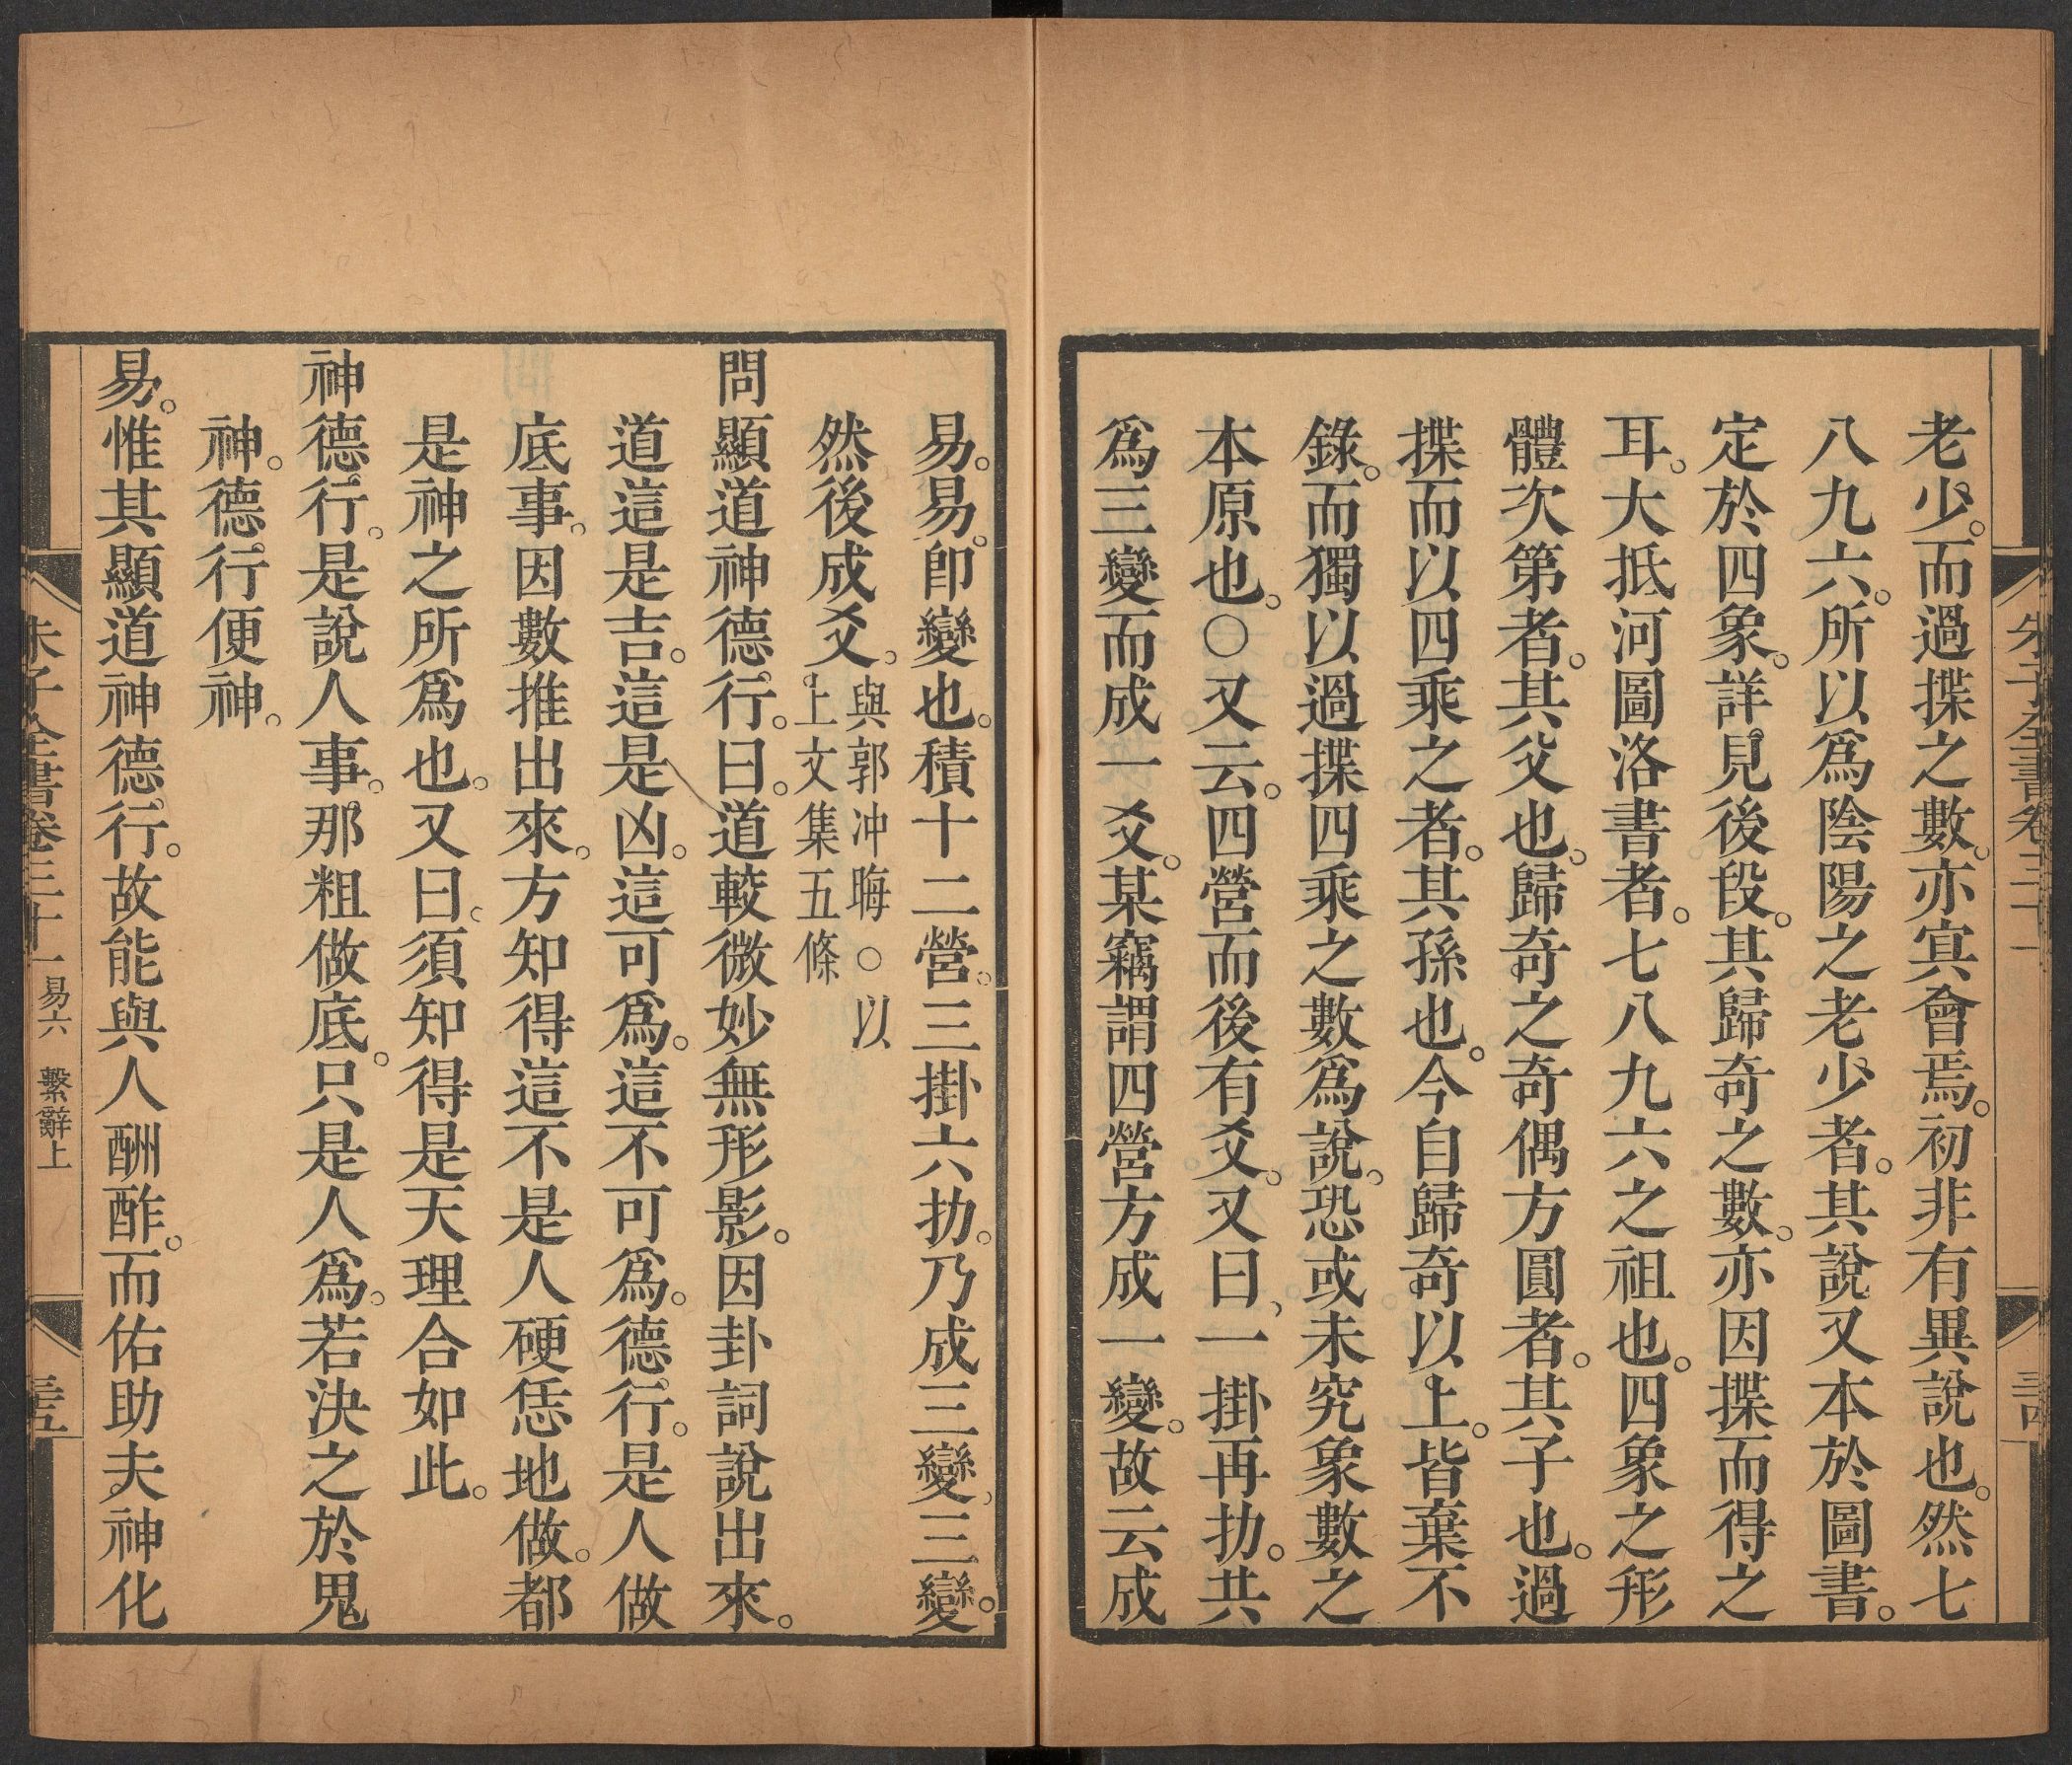 老少。而過揲之數。亦㝠會焉。初非有異說也。然七
八九六。所以爲陰陽之老少者。其說又本於圖書。
定於四象。詳見後段。其歸奇之數。亦因揲而得之
耳。大抵河圖洛書者。七八九六之祖也。四象之形
體次第者。其父也。歸奇之奇偶方圓者。其子也。過
揲而以四乘之者。其孫也。今自歸奇以上。皆棄不
錄。而獨以過揲四乘之數爲說。恐或未究象數之
本原也。○又云。四營而後有爻。又曰、一掛再扐。共
爲三變而成一爻。某竊謂四營方成一變。故云成
易。易。卽變也。積十二營。三掛六扐。乃成三變、三變。
然後成爻。與郭冲晦○以
上文集五條
問顯道神德行。曰。道較微妙無形影。因卦詞說出來。
道這是吉。這是凶。這可爲。這不可爲。德行。是人做
底事。因數推出來。方知得這不是人硬恁地做。都
是神之所爲也。又曰。須知得是天理合如此。
神德行。是說人事。那粗做底。只是人爲。若決之於鬼
神。德行便神。
易。惟其顯道神德行。故能與人酬酢。而佑助夫神化
朱子全書卷三十一 易六 繫辭上